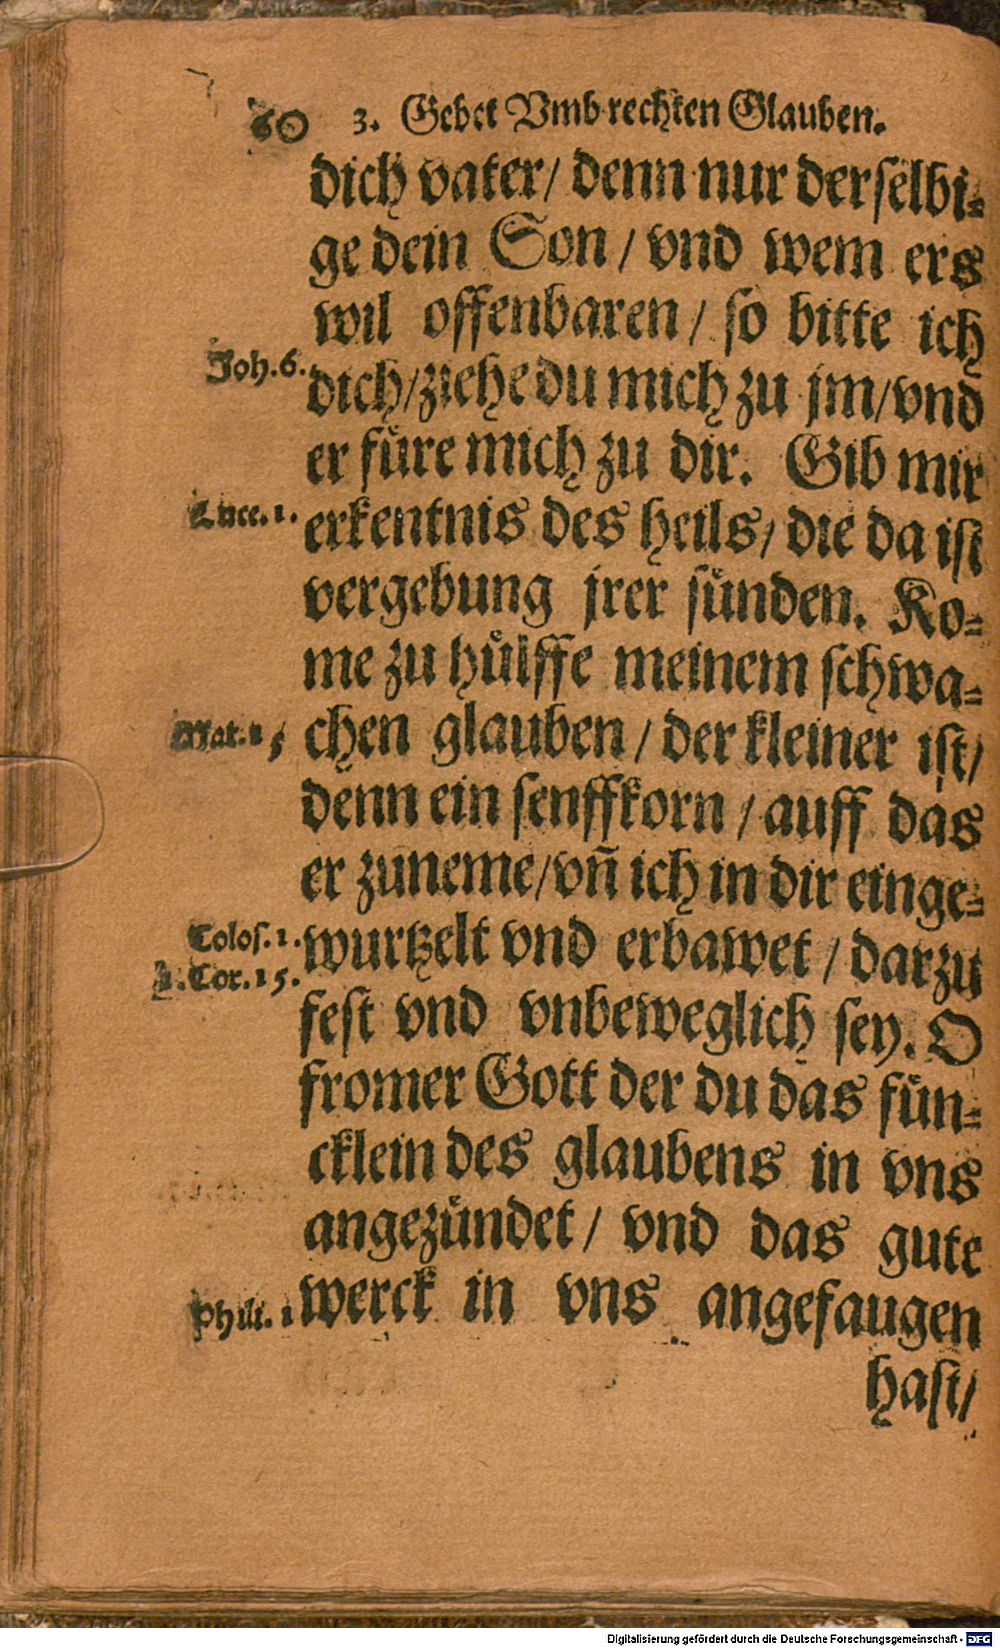 60 3. Gebet Vmb rechten Glauben.
dich vater/ denn nur derselbi⸗
ge dein Son / vnd wem ers
wil offenbaren / so bitte ich
Joh. 6.
dich/ziehe du mich zu jm/vnd
er fuͤre mich zu dir. Gib mir
Luce. 1.
erkentnis des heils/ die da ist
vergebung jrer suͤnden. Ko⸗
me zu huͤlffe meinem schwa⸗
Mat. 1
chen glauben / der kleiner ist/
denn ein senffkorn / auff das
er zuneme/vñ ich in dir einge⸗
Colos. 1.
wurtzelt vnd erbawet / darzu
1. Cor. 15.
fest vnd vnbeweglich sey. O
fromer Gott der du das fuͤn⸗
cklein des glaubens in vns
angezuͤndet / vnd das gute
Phili. 1
werck in vns angefaugen
hast/
Digitalisierung gefördert durch die Deutsche Forschungsgemeinschaft - DFG